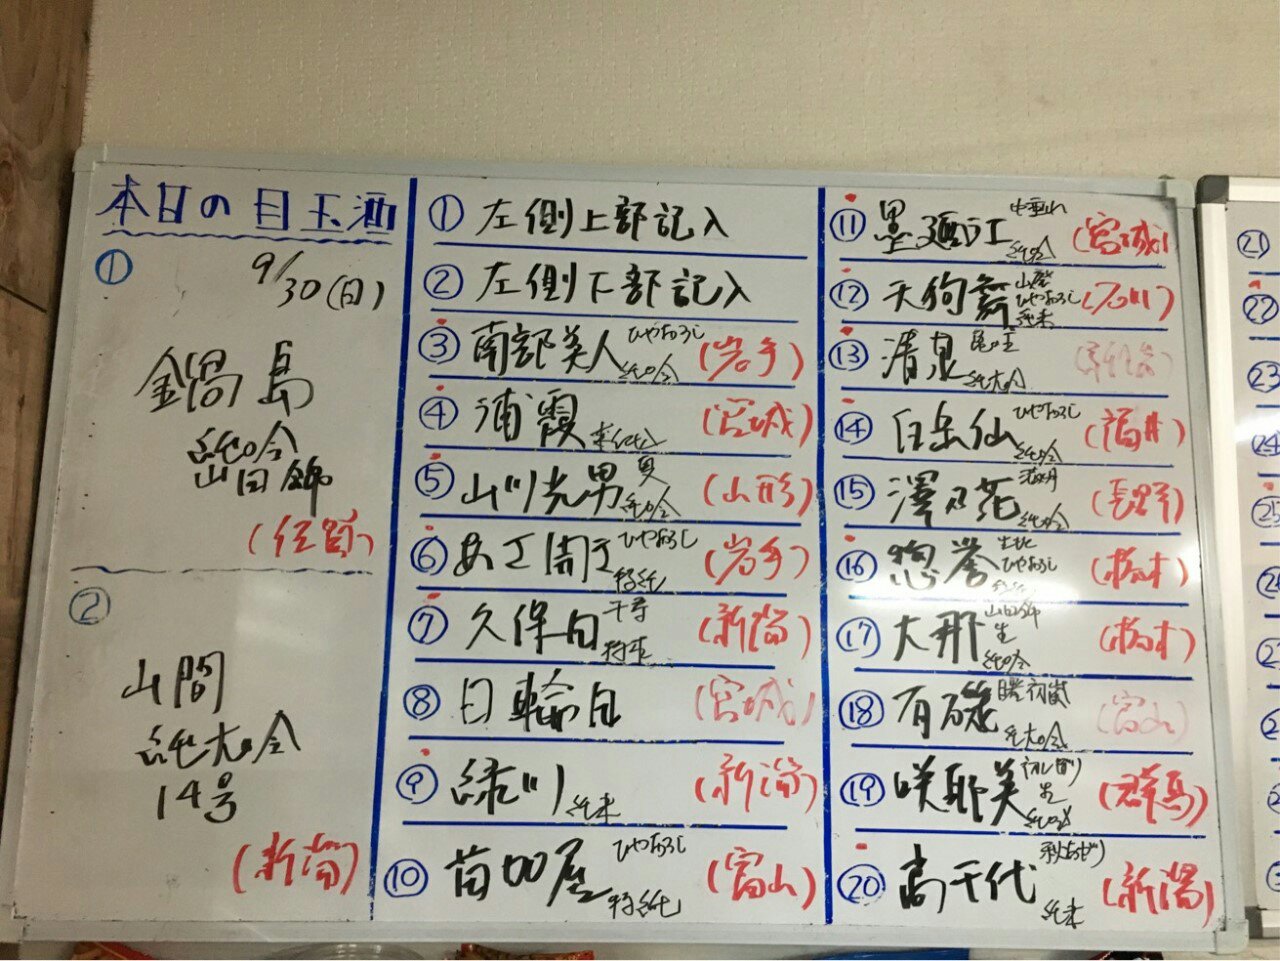 本日の目玉酒
① 9/30(日)
鍋島
純吟
山田錦
(佐賀)
②
山間
純大吟
14号
(新潟)
① 左側上部記入
② 左側下部記入
③ 南部美人 ひやおろし 純吟 (岩手)
④ 浦霞 (宮城)
⑤ 山川光男 純吟 (山形)
⑥ あさ開 ひやおろし 特純 (岩手)
⑦ 久保田 千寿 (新潟)
⑧ 日輪田 (宮城)
⑨ 緑川 純米 (新潟)
⑩ 苗加屋 ひやおろし 特純 (富山)
⑪ 墨廼江 中垂れ 純吟 (宮城)
⑫ 天狗舞 山廃 ひやおろし 純米 (石川)
⑬ 清泉 純大吟
⑭ 白岳仙 ひやおろし 純吟 (福井)
⑮ 澤の花 純吟 (長野)
⑯ 惣誉 生酛 ひやおろし (栃木)
⑰ 大那 山田錦 生 純吟 (栃木)
⑱ 有磯 曙 初嵐 純大吟 (富山)
⑲ 咲耶美 初しぼり 生 純吟 (群馬)
⑳ 高千代 秋あがり 純米 (新潟)
21
22
23
24
25